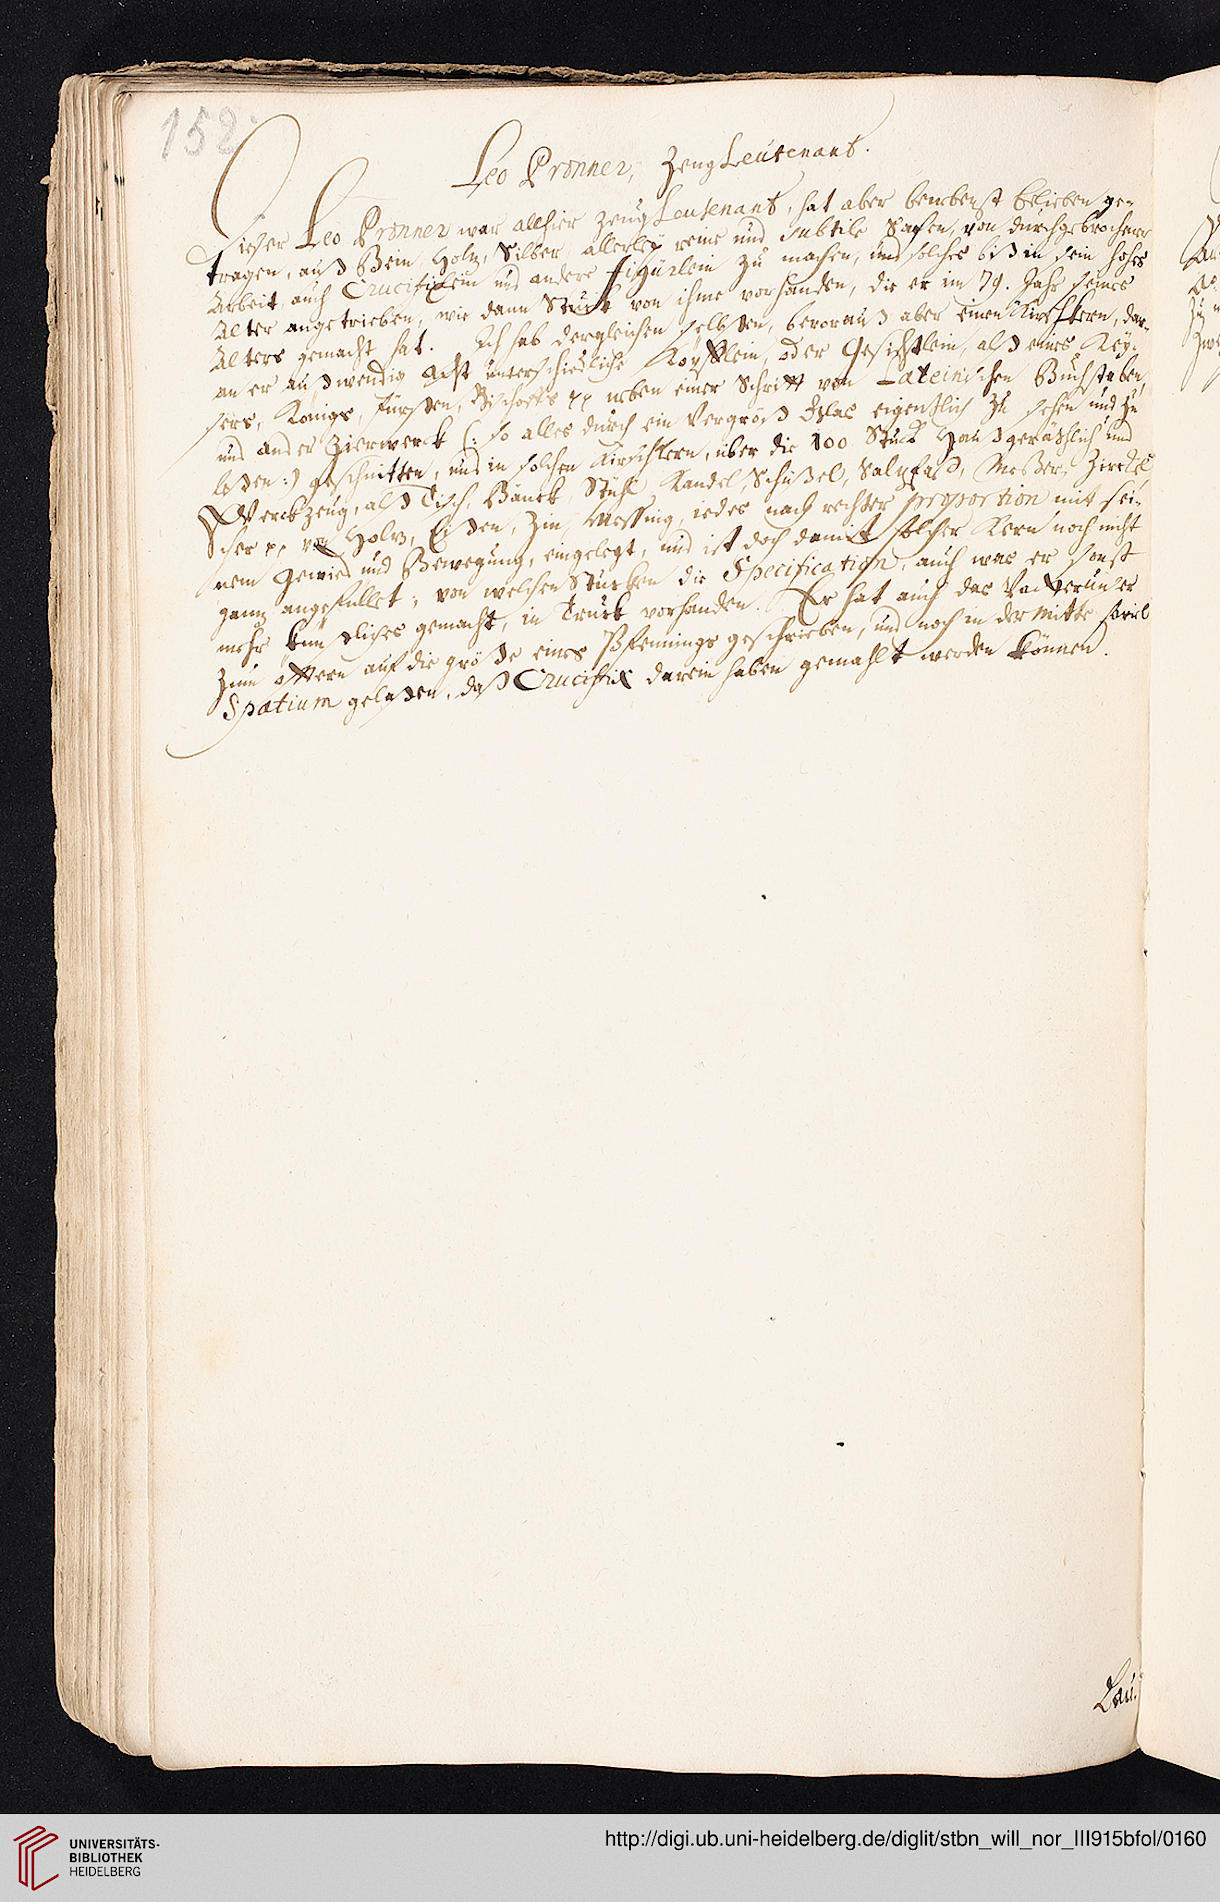 152.
Leo Pronner, Zeug Leütenant.
Dieser Leo Pronner war allhier Zeug Leutenant, hat aber benebenst belieben ge-
tragen, auß Bein, Holz, Silber, allerley reine und subtile Sachen, von durchgebrochener
Arbeit, auch Crucifixlein und andere figürlein zu machen, und solches biß in sein hohes
Alter angetrieben, wie dann Stück von ihme vorhanden, die er im 79. Jahr seines
Alters gemacht hat. Ich hab dergleichen selbsten, bevorauß aber einen Kirschkern, dar-
an er außwendig Acht unterschiedliche Köpfflein, oder Gesichtlein, alß eines Key-
sers, Königs, Fürsten, Bischoffs pp neben einer Schrifft von Lateinischen Buchstaben,
und ander Zierwerck (: so alles durch ein Vergröß Glas eigentlich zu sehen und zu
leßen :) geschnitten, und in solchen Kirschkern, über die 100 Stuck Haußgeräthlich und
Werckzeug, alß Tisch, Bänck, Stühl, Kandel, Schüßel, Saltzfaß, Meßer, Zirckel
Scher pp von Holtz, Eißen, Zin, Messing, iedes nach rechter proportion mit sei-
nem Gewind und Bewegung, eingelegt, und ist doch damit solcher Kern noch nicht
ganz angefüllet; von welchen Stücken die Specification, auch was er sonst
mehr künstliches gemacht, in Truck vorhanden. Er hat auch das Vatterunser
zum öfftern auf die größe eines Pfennings geschrieben, und noch in der Mitte soviel
Spatium gelaßen, daß Crucifix darein haben gemahlt werden können.
Lau.
UNIVERSITÄTS-
BIBLIOTHEK
HEIDELBERG
http://digi.ub.uni-heidelberg.de/diglit/stbn_will_nor_III915bfol/0160